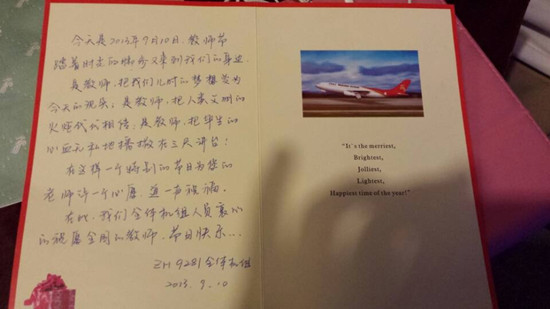 今天是2013年9月10日.教师节
踏着时光的脚步又来到我们的身边.
是教师,把我们儿时的梦想变为
今天的现实;是教师,把人类文明的
火炬代代相传;是教师,把毕生的
心血无私地播撒在三尺讲台!
在这样一个特别的节日为您的
老师许一个心愿,道一声祝福,
在此,我们全体机组人员衷心
的祝愿全国的教师,节日快乐...
ZH9281全体机组
2013.9.10
"It's the merriest,
Brightest,
Jolliest,
Lightest,
Happiest time of the year!"